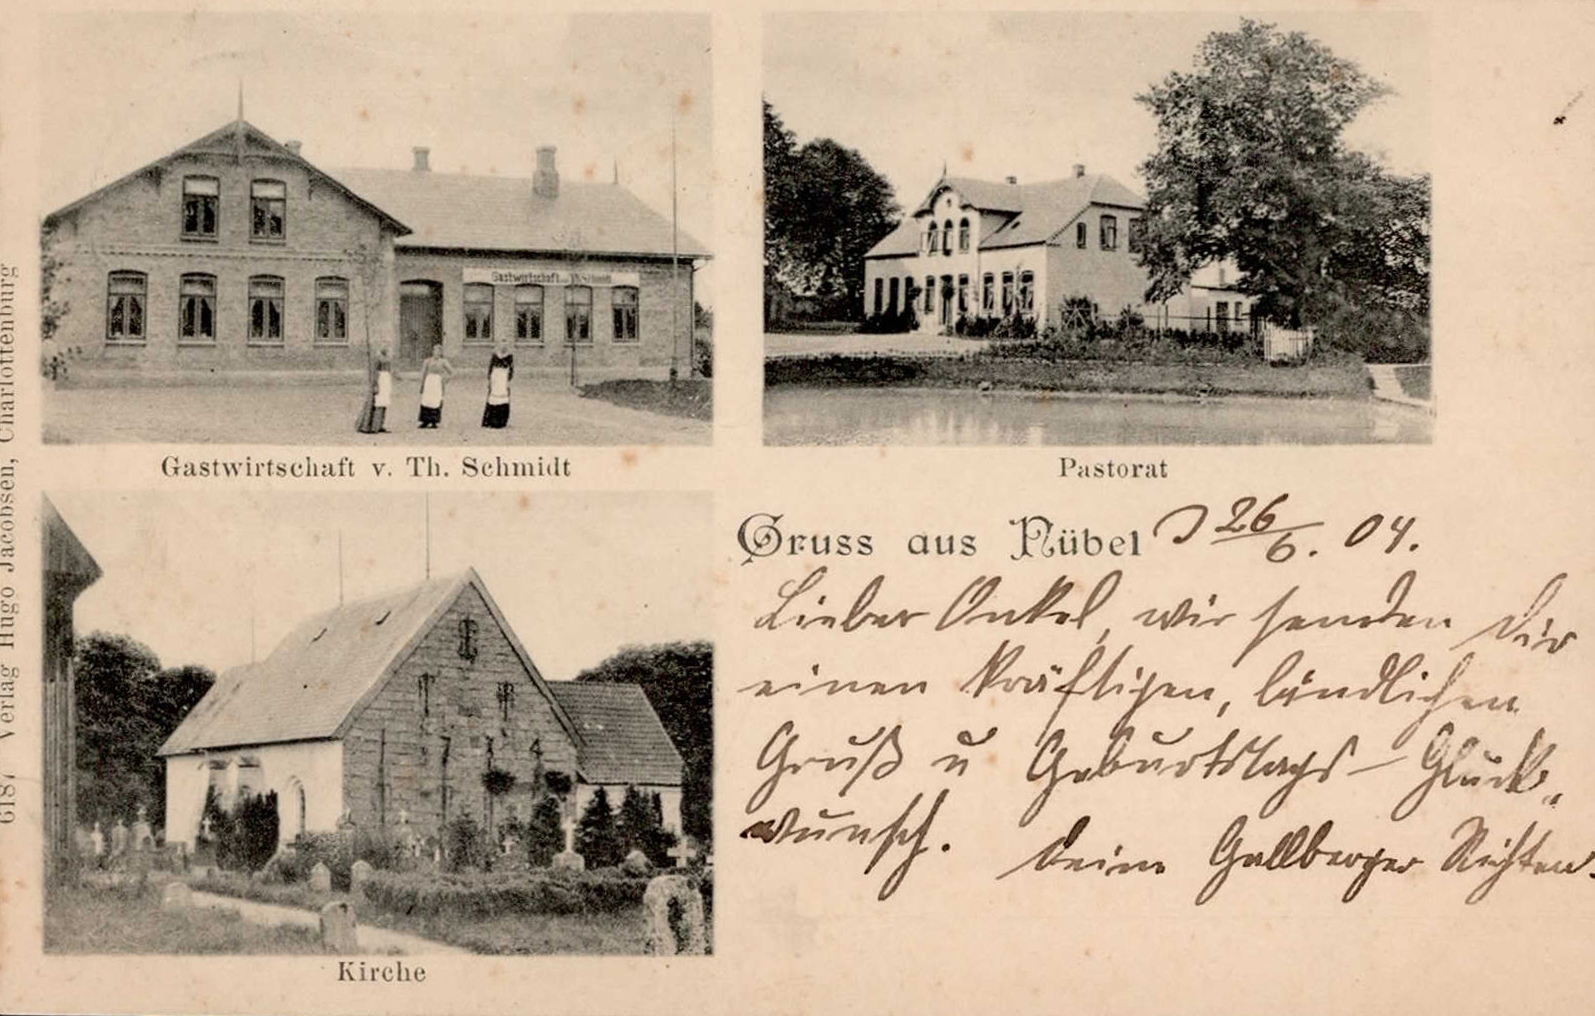 Gastwirtschaft v. Th. Schmidt
Gastwirtschaft Th. Schmidt
Pastorat
Gruss aus Nübel
26/6. 04.
Lieber Onkel, wir senden Dir
einen kräftigen, ländlichen
Gruß u Geburtstags-Glück„
wunsch. Deine Gallberger Nichten.
1734
Kirche
6187 Verlag Hugo Jacobsen, Charlottenburg